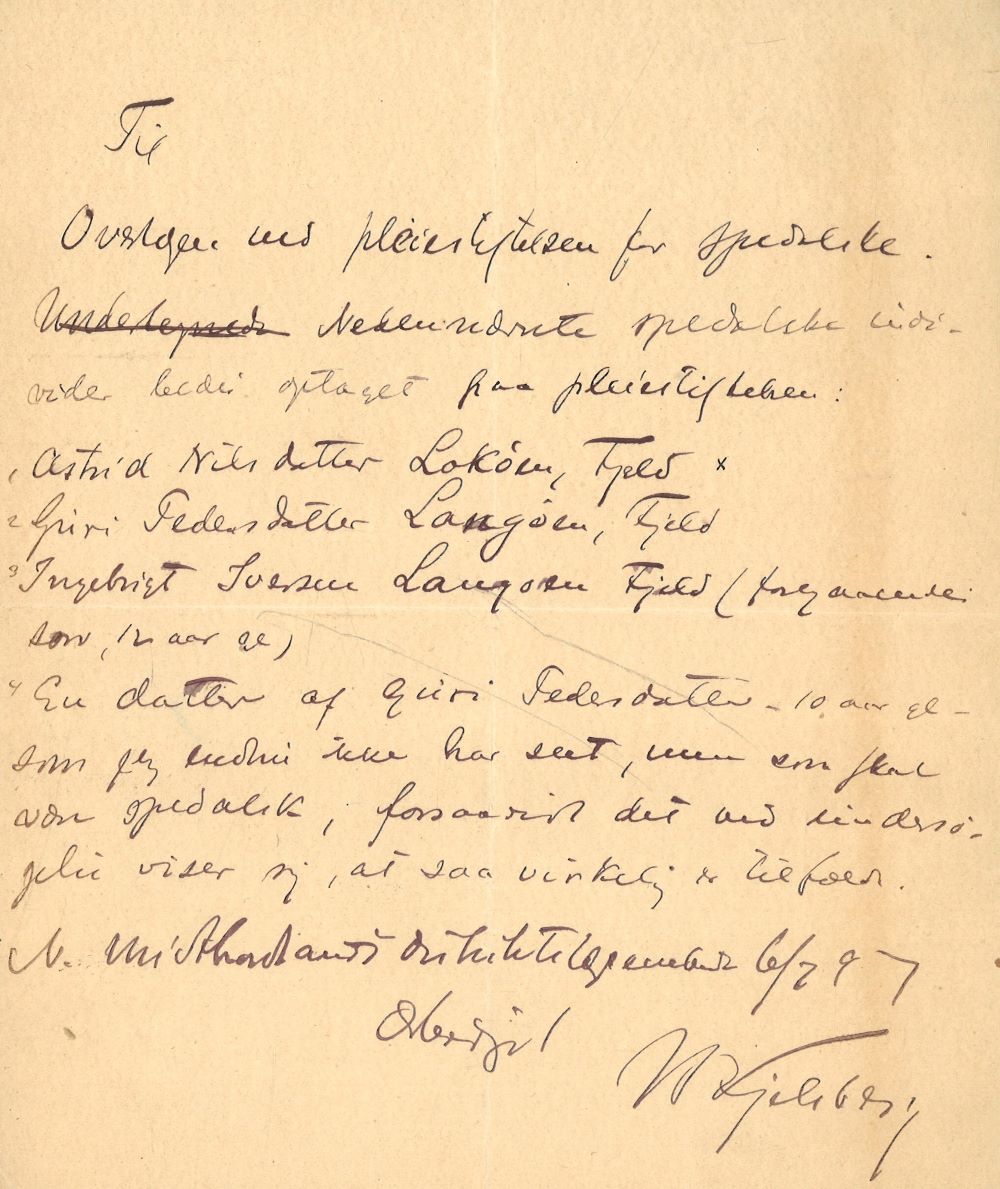 Til
Overlægen ved pleiestiftelsen for spedalske.
Undertegnede Nedennævnte spedalske indi-
vider bedes optaget paa pleiestiftelsen:
1, Astrid Nilsdatter Lokøen, Fjeld x
2 Guri Pedersdatter Langøen, Fjeld
3 Ingebrigt Iversen Langøen Fjeld (foregaaendes
søn, 12 aar gl)
4 En datter af Guri Pedersdatter - 10 aar gl -
som jeg endnu ikke har seet, men som skal
være spedalsk, forsaavidt det ved undersø-
gelse viser sig, at saa virkelig er tilfældet.
N. Midthordlands distriktslægeembede 6/7 97
Ærbødigst
Kjelsberg